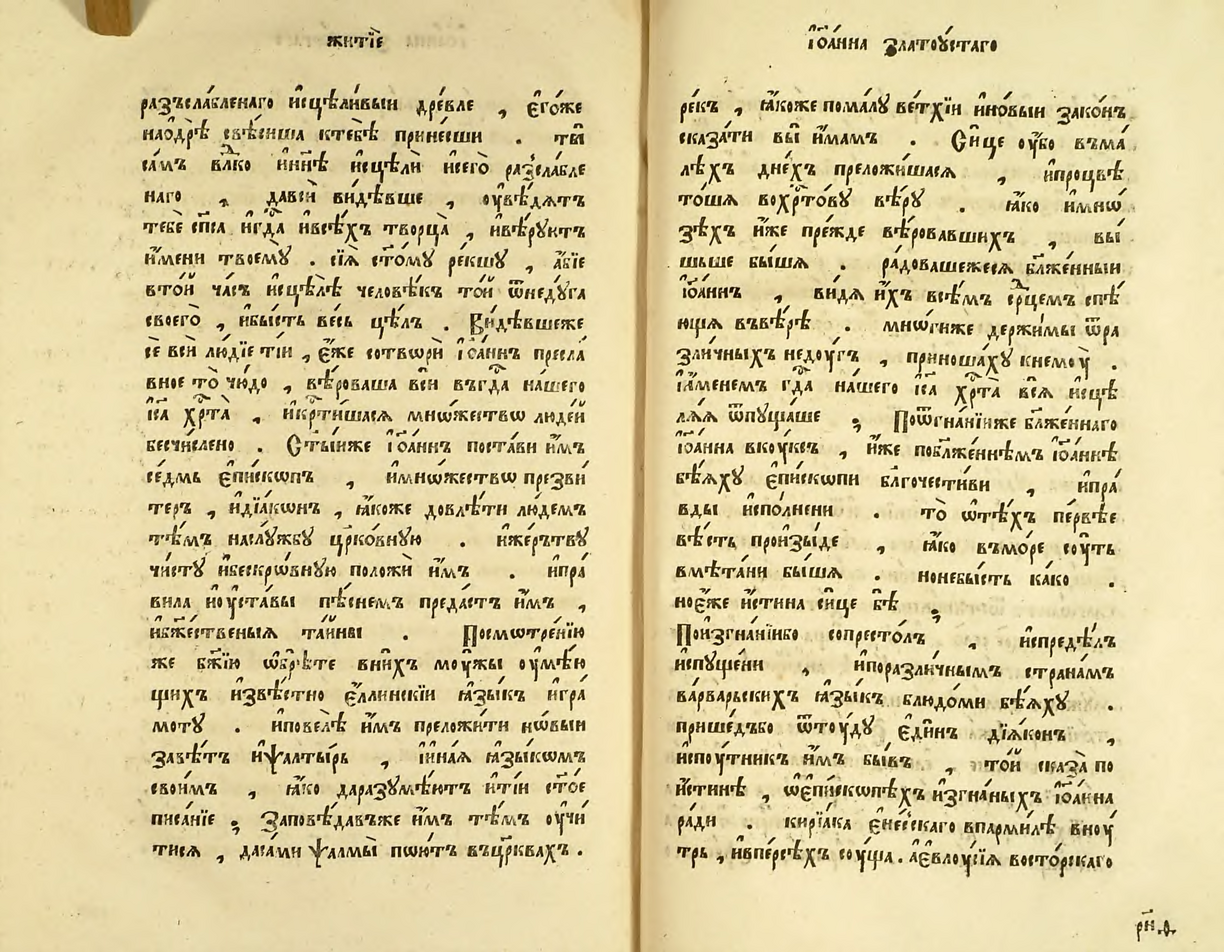 житїе
разъсла́бленаго и҆сцѣли́выи дре́вле , є҆го́же
наѻ҆дрѣ̀ свѣ́сиша ктебѣ̀ прине́сши . ты̀
са́мъ влⷣко и҆ нн҃ѣ и҆сцѣлѝ и҆сего̀ разсла́бле
наго , давсѝ ви́дѣвше , оу҆вѣ́дѧтъ
тебѐ сп҃са и҆гдⷭ҇а и҆всѣ́хъ творца̀ , и҆вѣ́руютъ
и҆́мени твоемꙋ̀ . сїѧ̀ ст҃о́мꙋ ре́кшꙋ , а҆́бїе
вто́и ча́съ и҆сцѣлѣ̀ человѣ́къ то́и ѿнедꙋ́га
своего̀ , и҆бы́сть ве́сь цѣ́лъ . Ви́дѣвшеже
сѐ всѝ лю́дїе тіи , є҆́же сотворѝ і҆ѡа́ннъ пресла́
вное то̀ чю́до , вѣ́роваша всѝ въгдⷭ҇а на́шего
і҆с҃а хрⷭ҇та̀ , и҆крⷭ҇ти́шасѧ мно́жество люде́й
бесчи́слено . Ст҃ы́иже і҆ѡа́ннъ поста́ви и҆̀мъ
се́дмь є҆пи́скѡпъ , и҆мно́жествѡ презви́
теръ , и҆дїа́кѡнъ , ꙗ҆́коже довлѣ́ти лю́демъ
тѣ́мъ наслꙋ́жбꙋ цр҃ко́внꙋю . и҆же́рътвꙋ
чи́стꙋ и҆бескро́внꙋю положѝ и҆̀мъ . и҆пра́
вила и҆оу҆ста́вы пѣ́снемъ преда́стъ и҆̀мъ ,
и҆бж҃е́ственыѧ та́йны . Посмѡтре́нїю
же бж҃їю ѡ҆брѣ́те вни́хъ моу́жы оу҆мѣ́ю
щихъ и҆звѣ́стно є҆́ллинскїи ꙗ҆зы́къ и҆гра́
мотꙋ . и҆повелѣ̀ и҆̀мъ преложи́ти но́выи
завѣ́тъ и҆ѱалты́рь , і҆и҆на́ѧ ꙗ҆зы́комъ
свои́мъ , ꙗ҆́ко даразꙋмѣ́ютъ и҆тіи ст҃о́е
писа́нїе ; Заповѣ́давъже и҆̀мъ тѣ́мъ оу҆чи́
тисѧ , даса́ми ѱалмы̀ пою́тъ въцр҃квахъ .
і҆ѡа́нна златоꙋ́стаго
ре́къ , ꙗ҆́коже пома́лꙋ ве́тхїи и҆но́выи зако́нъ
сказа́ти вы̀ и҆́мамъ . Си́це оу҆́бо въма́
лѣхъ дне́хъ преложи́шасѧ , и҆процвѣ
то́шѧ вохрⷭ҇то́вꙋ вѣ́рꙋ . ꙗ҆́ко и҆мнѡ́
зѣхъ и҆́же пре́жде вѣ́ровавшихъ , вы́
шьше бы́шѧ . ра́довашежесѧ бл҃же́нныи
і҆ѡа́ннъ , ви́дѧ и҆̀хъ всѣ́мъ срⷣцемъ спѣ́
ющѧ въвѣ́рѣ . мно́гиже держи́мы ѿра
зли́чныхъ недоу́гъ , приноша́хꙋ кнемоу̀ .
і҆и҆́менемъ гдⷭ҇а на́шего і҆с҃а хрⷭ҇та̀ всѧ̀ и҆сцѣ
лѧ́ѧ ѿпꙋща́ше ; Поѿгна́нїиже бл҃же́ннаго
і҆ѡа́нна вкоу́ксъ , и҆́же побл҃же́ннѣмъ і҆ѡа́ннѣ
бѣ́ѧхꙋ є҆пи́скопи бл҃гочести́ви , и҆пра́
вды и҆спо́лнени . то̀ ѡ҆тѣ́хъ пе́рвѣе
вѣ́сть произы́де , ꙗ҆́ко въмо́ре соу́ть
вме́тани бы́шѧ . нонебы́сть та́ко .
ноє҆́же и҆́стина си́це бѣ̀ ;
Поизгна́нїибо сопресто́лъ , и҆спредѣ́лъ
и҆спꙋ́щени , и҆поразли́чнымъ страна́мъ
ва́рварьскихъ ꙗ҆зы́къ блюдо́ми бѣ́ѧхꙋ .
прише́дъбо ѿтоу́дꙋ є҆ди́нъ дїа́конъ ,
и҆споу́тникъ и҆̀мъ бы́въ , то́и сказа̀ по
и҆́стинѣ , ѡ҆є҆пи́скопѣхъ и҆згна́ныхъ і҆ѡа́нна
ра́ди . кирїа́ка є҆не́сскаго впарми́лѣ вноу́
трь , и҆впе́рсѣхъ соу́ща . а҆є҆влоу́сїѧ восто́рскаго
рн҃ .д҃.